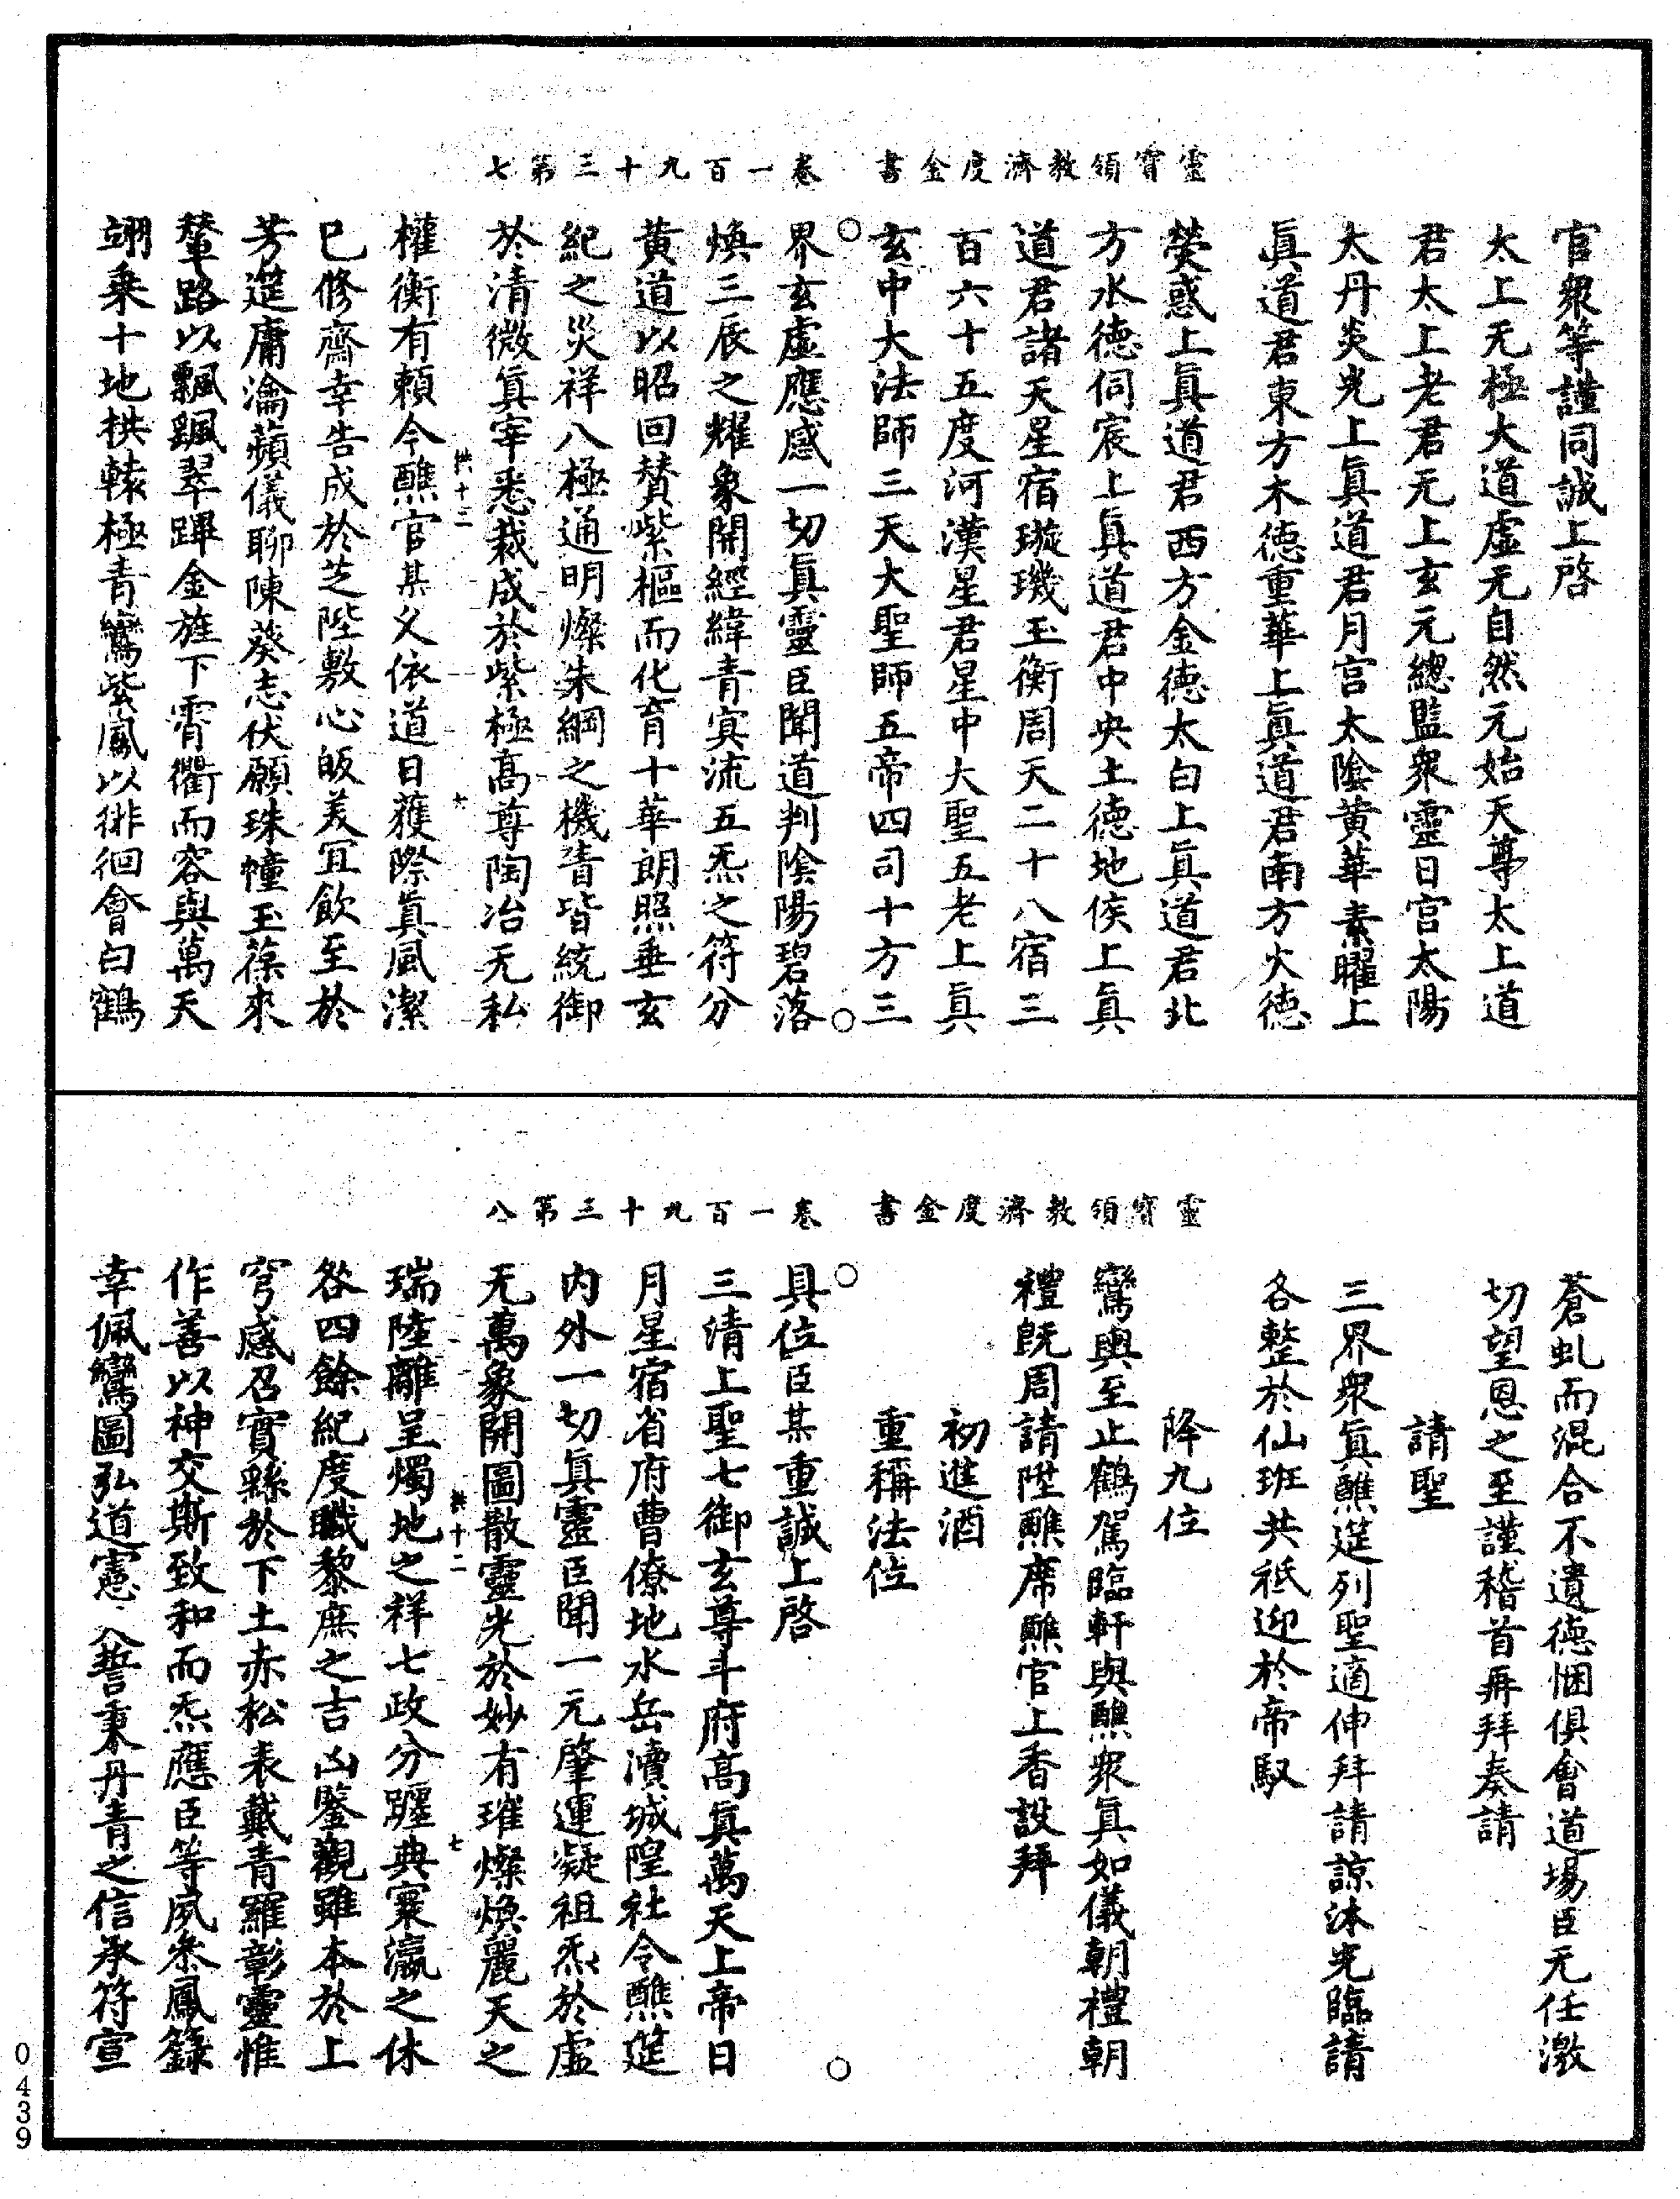 靈寶領教濟度金書　卷一百九十三第七
官衆等謹同誠上啓
太上无極大道虛无自然元始天尊太上道
君太上老君元上玄元總監衆靈日宮太陽
太丹炎光上眞道君月宮太陰黃華素曜上
眞道君東方木德重華上眞道君南方火德
熒惑上眞道君西方金德太白上眞道君北
方水德伺宸上眞道君中央土德地侯上眞
道君諸天星宿璇璣玉衡周天二十八宿三
百六十五度河漢星君星中大聖五老上眞
玄中大法師三天大聖師五帝四司十方三
界玄虛應感一切眞靈臣聞道判陰陽碧落
煥三辰之耀象開經緯青冥流五炁之符分
黃道以昭回贊紫樞而化育十華朗照垂玄
紀之災祥八極通明燦朱綱之機眚皆統御
於清微眞宰悉裁成於紫極高尊陶冶无私
權衡有賴今醮官某夂依道日蒦際眞風潔
巳修齋幸告成於芝陛敷心皈美冝飲至於
芳筵庸瀹蘋儀聊陳葵志伏願珠幢玉葆來
輦路以飄颻翠蹕金旌下霄衢而容與萬天
翊乗十地拱轅極青鸞紫鳳以徘徊會白鶴
靈寶領教濟度金書　卷一百九十三第八
蒼虬而混合不遺德悃俱會道場臣无任激
切望恩之至謹稽首再拜奏請
請聖
三界衆眞醮筵列聖適伸拜請諒沐光臨請
各整於仙班共祇迎於帝馭
降九位
鸞輿至止鶴駕臨軒與醮衆眞如儀朝禮朝
禮旣周請陞醮席醮官上香設拜
初進酒
重稱法位
具位臣某重誠上啓
三清上聖七御玄尊斗府高眞萬天上帝日
月星宿省府曹僚地水岳瀆城隍社令醮筵
內外一切眞靈臣聞一元肇運凝祖炁於虛
无萬象開圖散靈光於妙有璀燦煥麗天之
瑞陸離呈燭地之祥七政分躔典寀瀛之休
咎四餘紀度職黎庶之吉凶鑒觀雖本於上
穹感召實繇於下土赤松表戴青羅彰靈惟
作善以神交斯致和而炁應臣等夙參鳳籙
幸佩鸞圖弘道憲入誓秉丹青之信承符宣
0439